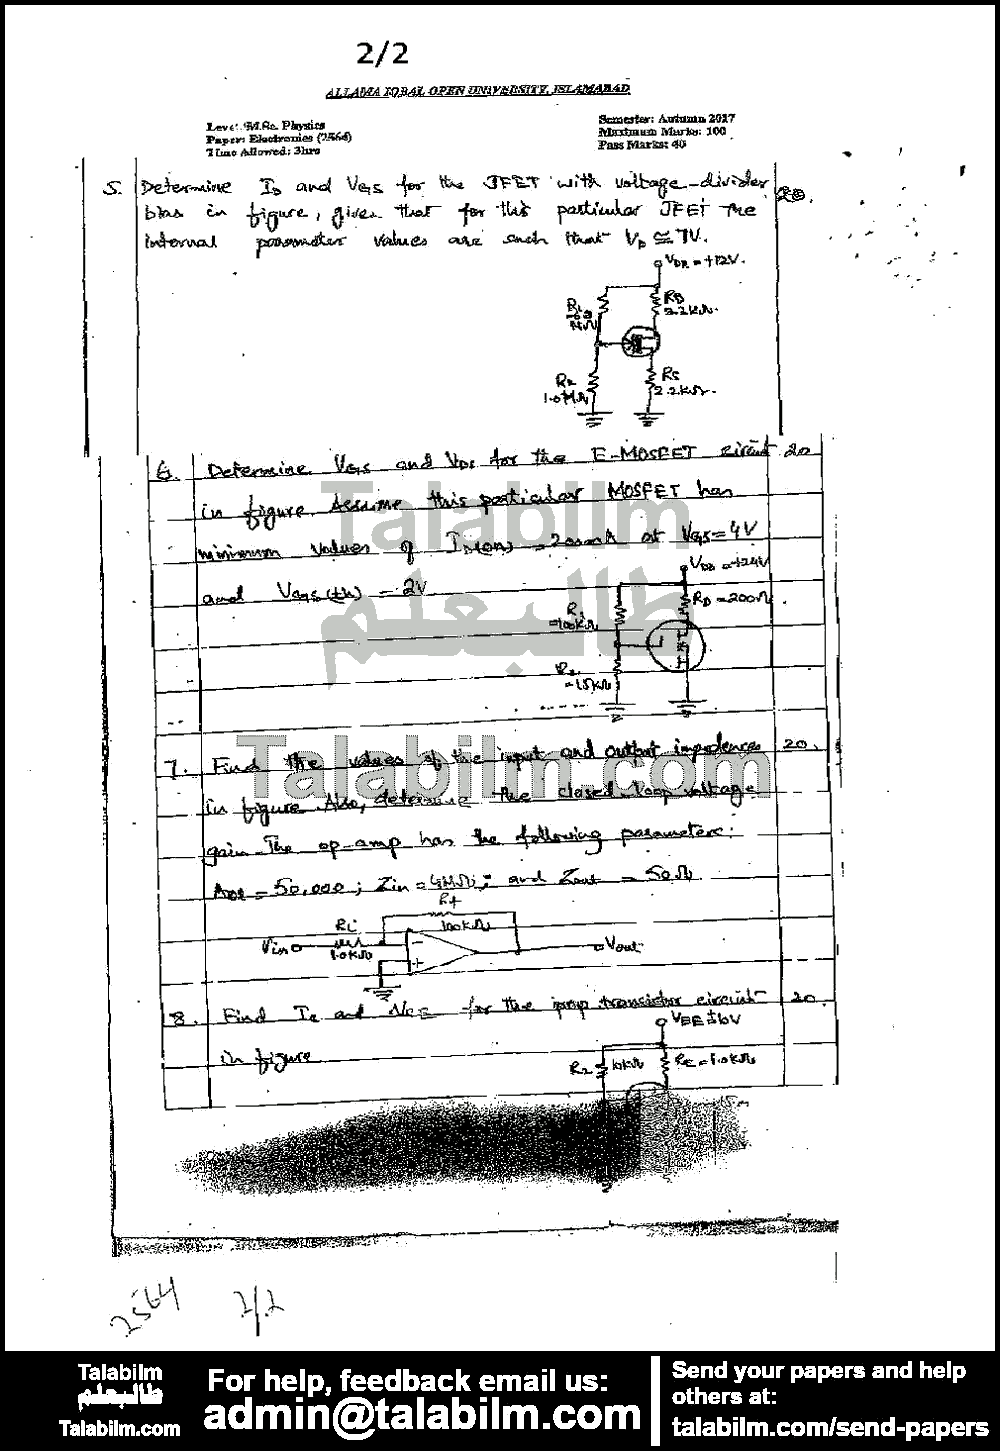 2/2
ALLAMA IQBAL OPEN UNIVERSITY, ISLAMABAD
Level: M.Sc. Physics
Paper: Electronics (2564)
Time Allowed: 3hrs
Semester: Autumn 2017
Maximum Marks: 100
Pass Marks: 40
5. Determine ID and VGS for the JFET with voltage-divider 20.
bias in figure, given that for this particular JFET the
internal parameter values are such that VD ≅ 7V.
VDD = +12V.
R1
MΩ
RD
2.2kΩ.
R2
1.0MΩ
RS
2.2kΩ.
6. Determine VGS and VDS for the E-MOSFET circuit 20
in figure. Assume this particular MOSFET has
minimum values of ID(on) = 200mA at VGS = 4V
and VGS(th) = 2V
VDD = +24V
R1
=100kΩ
RD = 200Ω.
R2
=15kΩ
Talabilm
طالبعلم
Talabilm.com
7. Find the values of the input and output impedences 20.
in figure. Also, determine the closed-loop voltage
gain. The op-amp has the following parameters:
AOL = 50,000; Zin = 4MΩ; and Zout = 50Ω
Ri
1.0kΩ
Rf
100kΩ
Vin
Vout
8. Find IC and VCE for the pnp transistor circuit 20.
in figure
R2 10kΩ
RE = 1.0kΩ
2564 2/2
Talabilm
طالبعلم
Talabilm.com
For help, feedback email us:
admin@talabilm.com
Send your papers and help
others at:
talabilm.com/send-papers